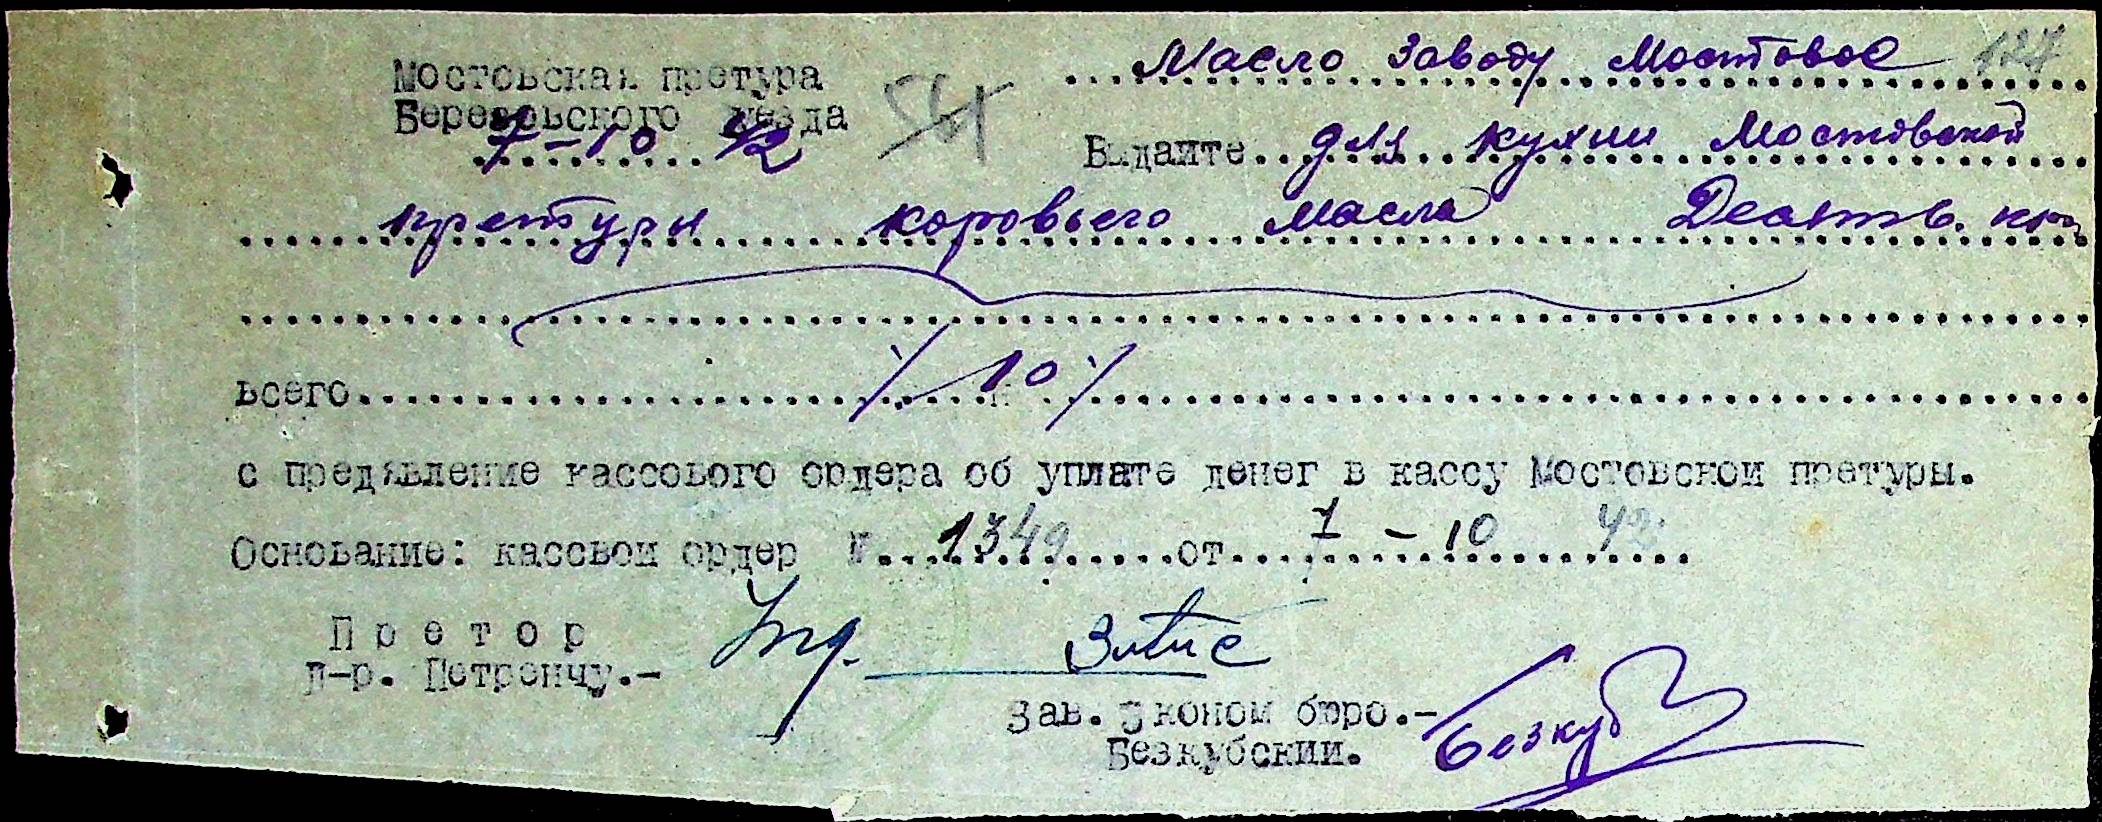 Мостовская претура
Березовского уезда
7-10 42
54
Масло Заводу Мостовое 127
Выдайте для кухни Мостовской
претуры коровьего масла Десять кгр
всего 10
с предявление кассового ордера об уплате денег в кассу Мостовской претуры.
Основание: кассвой ордер № 1349 от 7 - 10 42
Претор
д-р. Петренчу.-
Зав. Эконом бюро.-
Безкубский.
Безкуб